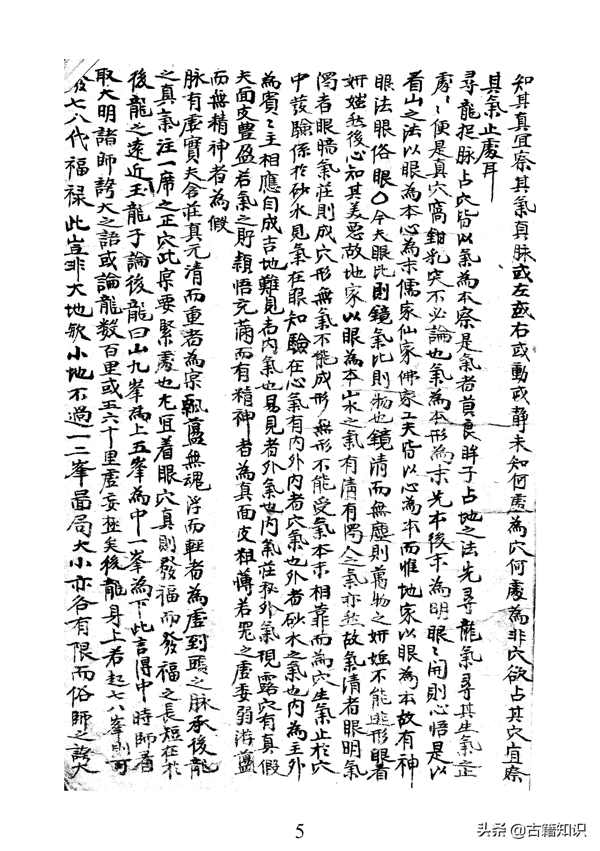 知其真宜察其氣真脉或左或右或動或靜未知何處為穴何處為非穴欲占其穴宜察
其氣止處耳
尋龍捉脉占穴皆以氣為本察是氣者莫良眸子占地之法先尋龍氣尋其生氣之止
處々便是真穴窩鉗乳突不必論也氣為本形為末先本後末為明眼々開則心悟是以
看山之法以眼為本心為末儒家仙家佛家工夫皆以心為本而惟地家以眼為本故有神
眼法眼俗眼〇今夫眼比則鏡氣比則物也鏡清而無塵則萬物之妍媸不能逃形眼看
妍媸然後心知其美惡故地家以眼為本山水之氣有清有濁人之氣亦然故氣清者眼明氣
濁者眼暗氣莊則成穴形無氣不能成形無形不能受氣本末相靠而為穴生氣止於穴
中諼驗係於砂水見氣在眼知驗在心氣有內外內者穴氣也外者砂水之氣也內為主外
為賓々主相應自成吉地難見者內氣也易見者外氣也內氣莊秘外氣現露穴有真假
夫面皮豊盈若氣之貯穎悟充滿而有精神者為真面皮粗薄若冤之虛委弱浮蕩
而無精神者為假
脉有虛實夫含莊真元清而重者為實飄蕩無魂浮而輕者為虛到頭之脉承後龍
之真氣注一席之正穴此宗要緊處也尤宜着眼穴真則發福而發福之長短在於
後龍之遠近玉龍子論後龍曰山九峯為上五峯為中一峯為下此言得中時師看
取大明諸師誇大之語或論龍數百里或五六十里虛妄極矣後龍身上若起七八峯則可
發七八代福祿此豈非大地歟小地不過一二峯畐局大小亦各有限而俗師之誇大
5
头条@古籍知识